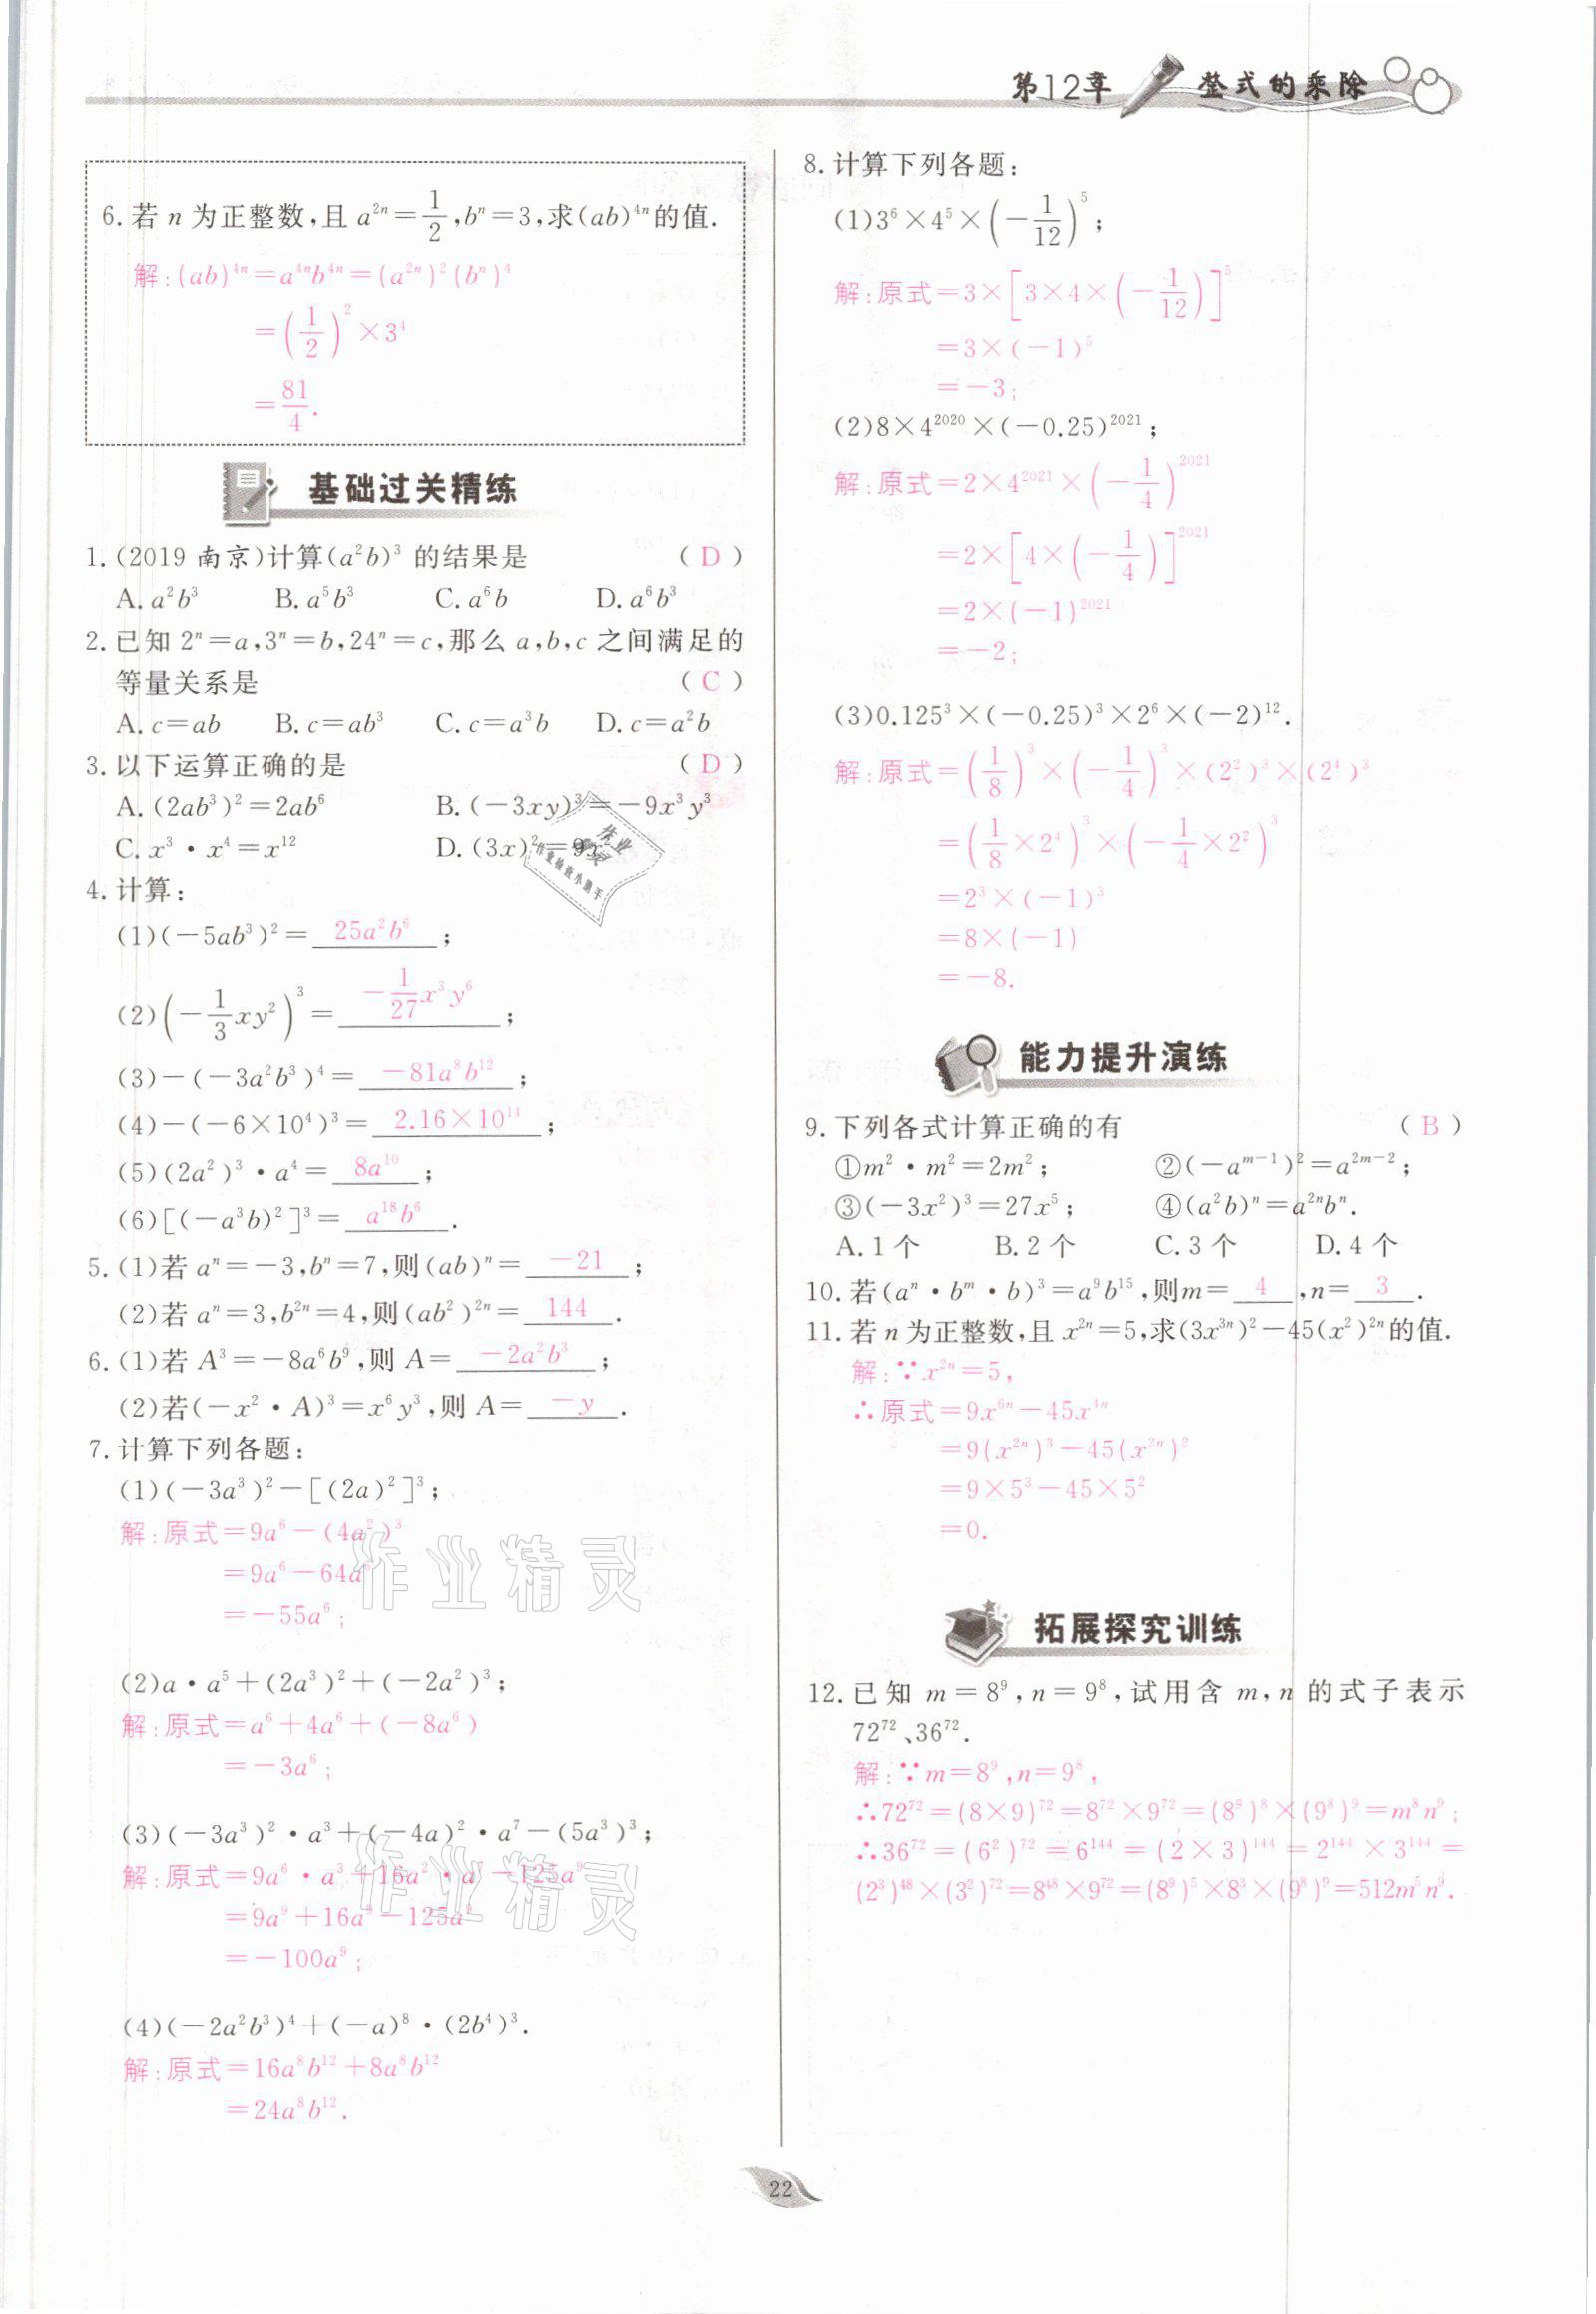 第12章 整式的乘除
6.若 n 为正整数,且 a²ⁿ=1/2,bⁿ=3,求(ab)⁴ⁿ的值.
解:(ab)⁴ⁿ=a⁴ⁿb⁴ⁿ=(a²ⁿ)²(bⁿ)⁴
=(1/2)²×3⁴
=81/4.
基础过关精练
1.(2019 南京)计算(a²b)³ 的结果是 (D)
A.a²b³ B.a⁵b³ C.a⁶b D.a⁶b³
2.已知 2ⁿ=a,3ⁿ=b,24ⁿ=c,那么 a,b,c 之间满足的
等量关系是 (C)
A.c=ab B.c=ab³ C.c=a³b D.c=a²b
3.以下运算正确的是 (D)
A.(2ab³)²=2ab⁶ B.(-3xy)³=-9x³y³
C.x³·x⁴=x¹² D.(3x)²=9x²
4.计算:
(1)(-5ab³)²=25a²b⁶;
(2)(-1/3xy²)³=-1/27x³y⁶;
(3)-(-3a²b³)⁴=-81a⁸b¹²;
(4)-(-6×10⁴)³=2.16×10¹⁴;
(5)(2a²)³·a⁴=8a¹⁰;
(6)[(-a³b)²]³=a¹⁸b⁶.
5.(1)若 aⁿ=-3,bⁿ=7,则(ab)ⁿ=-21;
(2)若 aⁿ=3,b²ⁿ=4,则(ab²)²ⁿ=144.
6.(1)若 A³=-8a⁶b⁹,则 A=-2a²b³;
(2)若(-x²·A)³=x⁶y³,则 A=-y.
7.计算下列各题:
(1)(-3a³)²-[(2a)²]³;
解:原式=9a⁶-(4a²)³
=9a⁶-64a⁶
=-55a⁶;
(2)a·a⁵+(2a³)²+(-2a²)³;
解:原式=a⁶+4a⁶+(-8a⁶)
=-3a⁶;
(3)(-3a³)²·a³+(-4a)²·a⁷-(5a³)³;
解:原式=9a⁶·a³+16a²·a⁷-125a⁹
=9a⁹+16a⁹-125a⁹
=-100a⁹;
(4)(-2a²b³)⁴+(-a)⁸·(2b⁴)³.
解:原式=16a⁸b¹²+8a⁸b¹²
=24a⁸b¹².
8.计算下列各题:
(1)3⁶×4⁵×(-1/12)⁵;
解:原式=3×[3×4×(-1/12)]⁵
=3×(-1)⁵
=-3;
(2)8×4²⁰²⁰×(-0.25)²⁰²¹;
解:原式=2×4²⁰²¹×(-1/4)²⁰²¹
=2×[4×(-1/4)]²⁰²¹
=2×(-1)²⁰²¹
=-2;
(3)0.125³×(-0.25)³×2⁶×(-2)¹².
解:原式=(1/8)³×(-1/4)³×(2²)³×(2⁴)³
=(1/8×2⁴)³×(-1/4×2²)³
=2³×(-1)³
=8×(-1)
=-8.
能力提升演练
9.下列各式计算正确的有 (B)
①m²·m²=2m²; ②(-aᵐ⁻¹)²=a²ᵐ⁻²;
③(-3x²)³=27x⁵; ④(a²b)ⁿ=a²ⁿbⁿ.
A.1 个 B.2 个 C.3 个 D.4 个
10.若(aⁿ·bᵐ·b)³=a⁹b¹⁵,则m=4,n=3.
11.若 n 为正整数,且 x²ⁿ=5,求(3x³ⁿ)²-45(x²)²ⁿ的值.
解:∵x²ⁿ=5,
∴原式=9x⁶ⁿ-45x⁴ⁿ
=9(x²ⁿ)³-45(x²ⁿ)²
=9×5³-45×5²
=0.
拓展探究训练
12.已知 m=8⁹,n=9⁸,试用含 m,n 的式子表示
72⁷²、36⁷².
解:∵m=8⁹,n=9⁸,
∴72⁷²=(8×9)⁷²=8⁷²×9⁷²=(8⁹)⁸×(9⁸)⁹=m⁸n⁹;
∴36⁷²=(6²)⁷²=6¹⁴⁴=(2×3)¹⁴⁴=2¹⁴⁴×3¹⁴⁴=
(2³)⁴⁸×(3²)⁷²=8⁴⁸×9⁷²=(8⁹)⁵×8³×(9⁸)⁹=512m⁵n⁹.
22
作业精灵
作业精灵
作业检查小助手